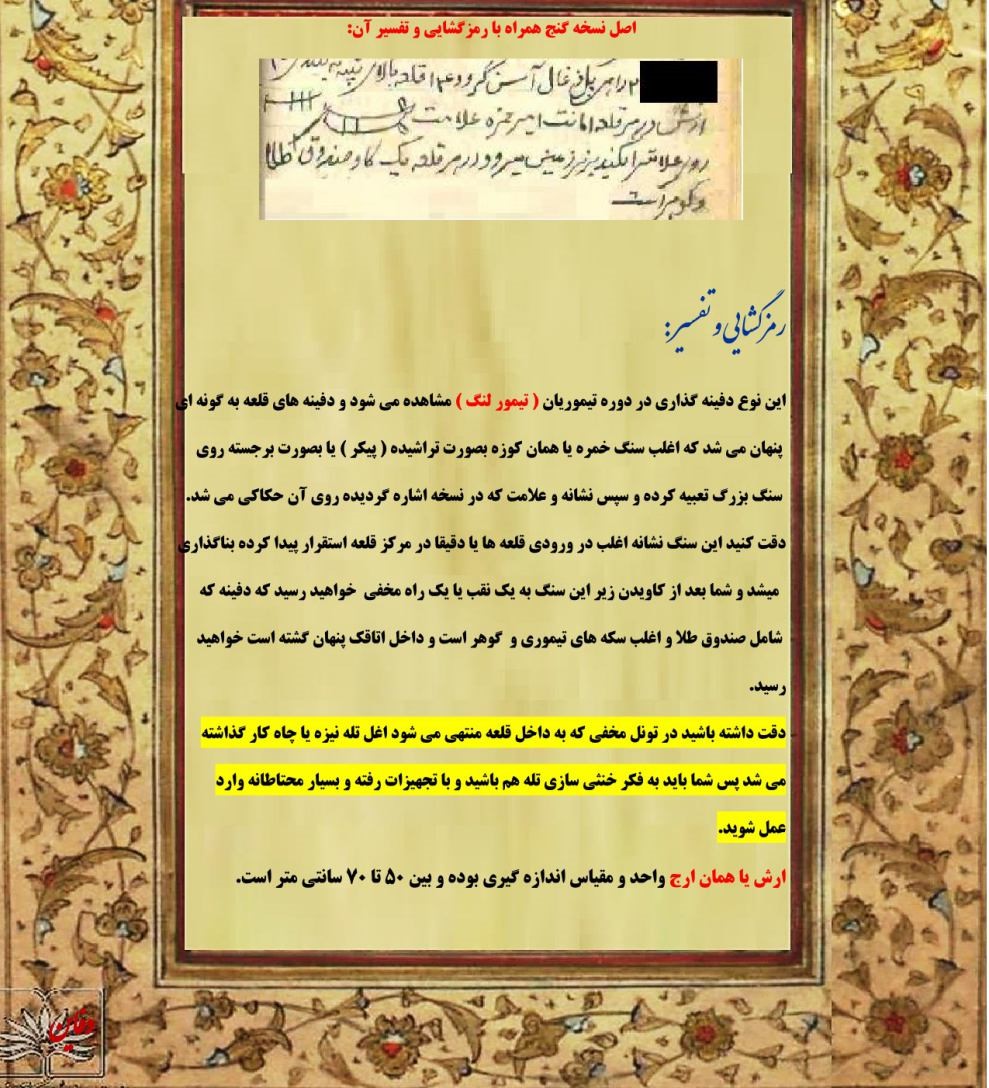 اصل نسخه گنج همراه با رمزگشایی و تفسیر آن:
ارش در هر قلعه امانت امیر حمزه علامت
روی علامتی را بکنید زیر زمین میرود در هر قلعه یک گاو صندوق طلا
و گوهر است
رمزگشایی و تفسیر:
این نوع دفینه گذاری در دوره تیموریان ( تیمور لنگ ) مشاهده می شود و دفینه های قلعه به گونه ای
پنهان می شد که اغلب سنگ خمره یا همان کوزه بصورت تراشیده ( پیکر ) یا بصورت برجسته روی
سنگ بزرگ تعبیه کرده و سپس نشانه و علامت که در نسخه اشاره گردیده روی آن حکاکی می شد.
دقت کنید این سنگ نشانه اغلب در ورودی قلعه ها یا دقیقا در مرکز قلعه استقرار پیدا کرده بناگذاری
میشد و شما بعد از کاویدن زیر این سنگ به یک نقب یا یک راه مخفی خواهید رسید که دفینه که
شامل صندوق طلا و اغلب سکه های تیموری و گوهر است و داخل اتاقک پنهان گشته است خواهید
رسید.
دقت داشته باشید در تونل مخفی که به داخل قلعه منتهی می شود اغل تله نیزه یا چاه کار گذاشته
می شد پس شما باید به فکر خنثی سازی تله هم باشید و با تجهیزات رفته و بسیار محتاطانه وارد
عمل شوید.
ارش یا همان ارج واحد و مقیاس اندازه گیری بوده و بین ۵۰ تا ۷۰ سانتی متر است.
دفاین